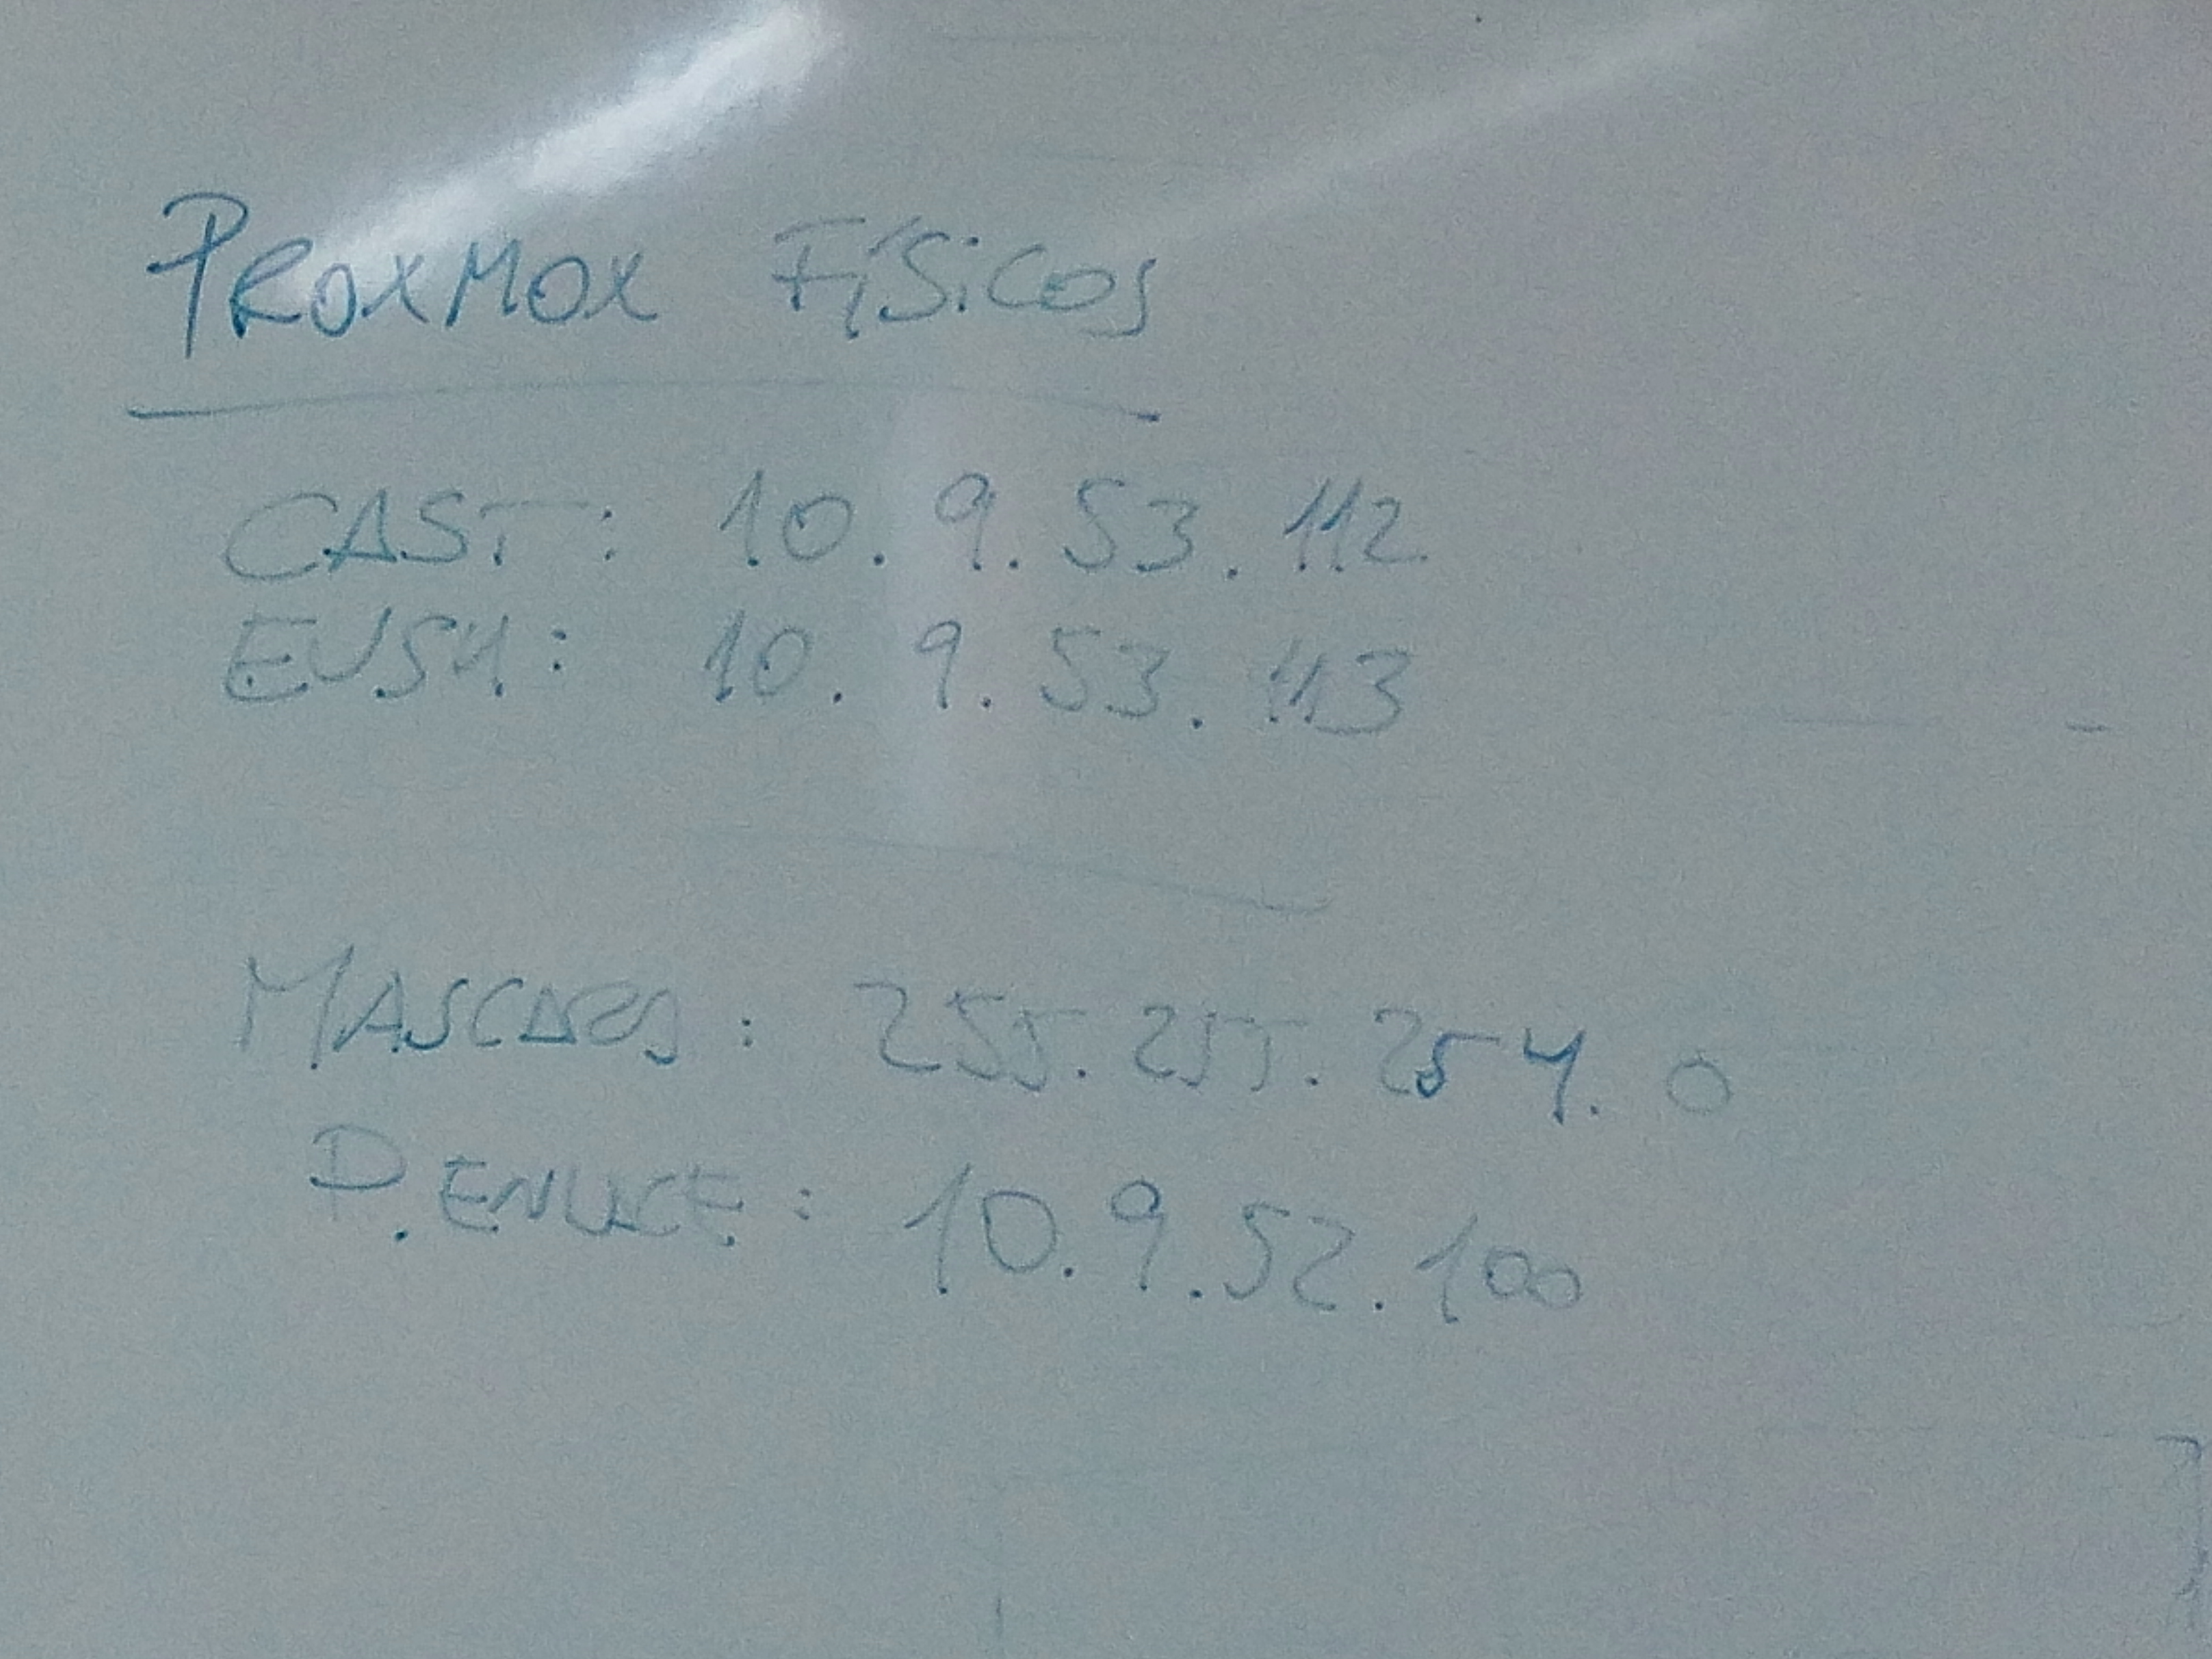 PROXMOX FÍSICOS
CAST: 10.9.53.112
EUSK: 10.9.53.113
MASCARA: 255.255.254.0
P.ENLACE: 10.9.52.100